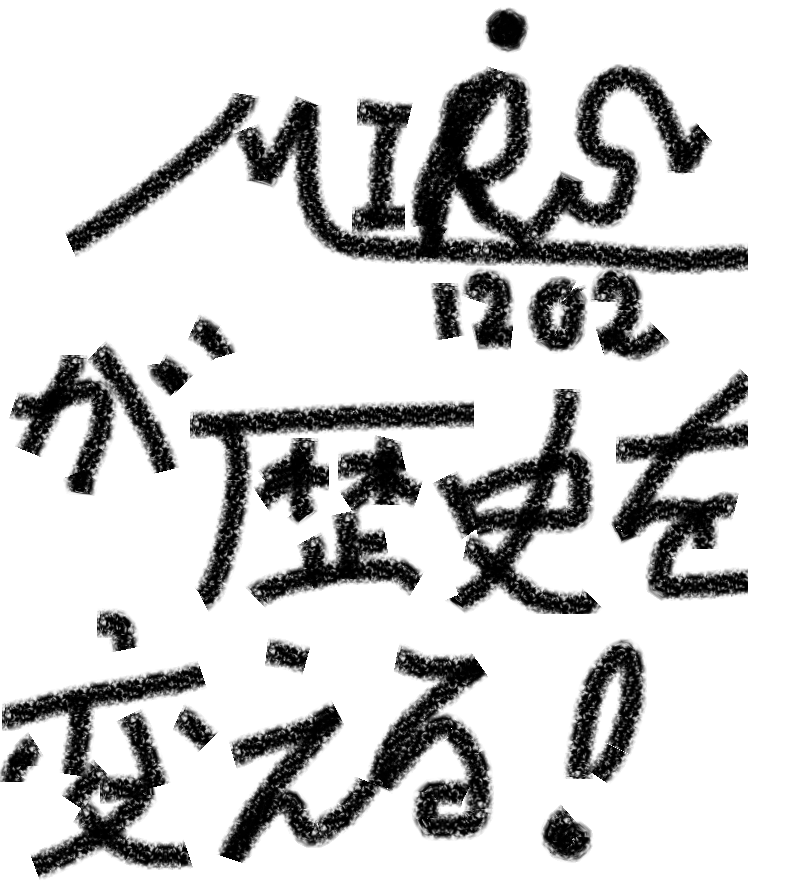 MIRS
1202
が歴史を
変える!